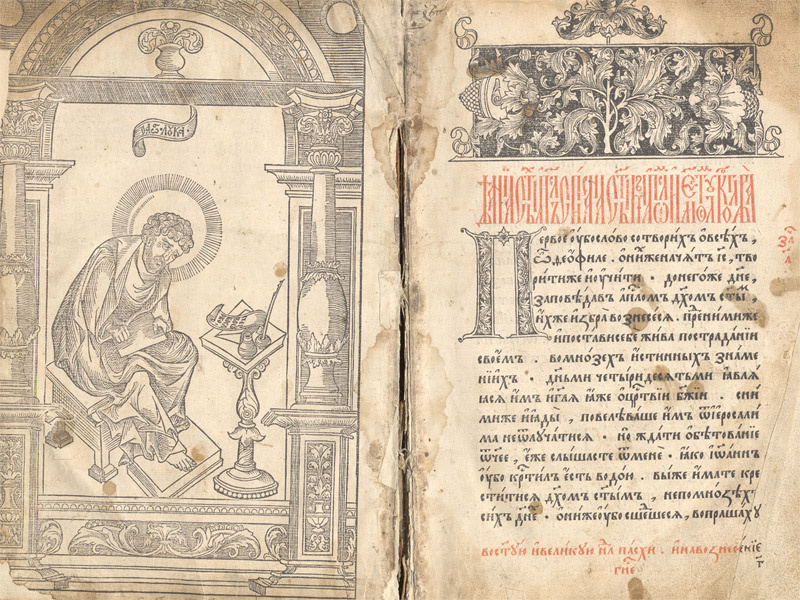 лука
Первое оубо слово сотворихъ ѡ всѣхъ,
ѽ ѳеофиле . ѡ нихже начатъ і҃с, тво
рити же и оучити . до негоже дн҃е,
заповѣдавъ ап҃лом дх҃омъ ст҃ым,
ихже избра вознесеся . пред ними же
и постави себе жива по страданїи
своемъ . во мнозехъ истинныхъ знаме
нїихъ . дн҃ьми четыридесятьми являя
яся имъ и гл҃я яже о црⷭ҇твїи бж҃їи . с ни
миже и яды, повелѣваше имъ ѿ ерⷭ҇осали
ма не ѿлучатися . но ждати обѣтованїе
ѿч҃ее, еже слышасте ѿ мене . яко іѡаннъ
оубо крⷭ҇тилъ есть водою . вы же имате кре
ститися дх҃омъ ст҃ымъ, не по мнозѣхъ
сихъ дн҃е . они же оубо сшедшеся, вопрашаху
во ст҃ую и великую нⷣ҇лю пасхи . и на вознесенїе
гн҃е